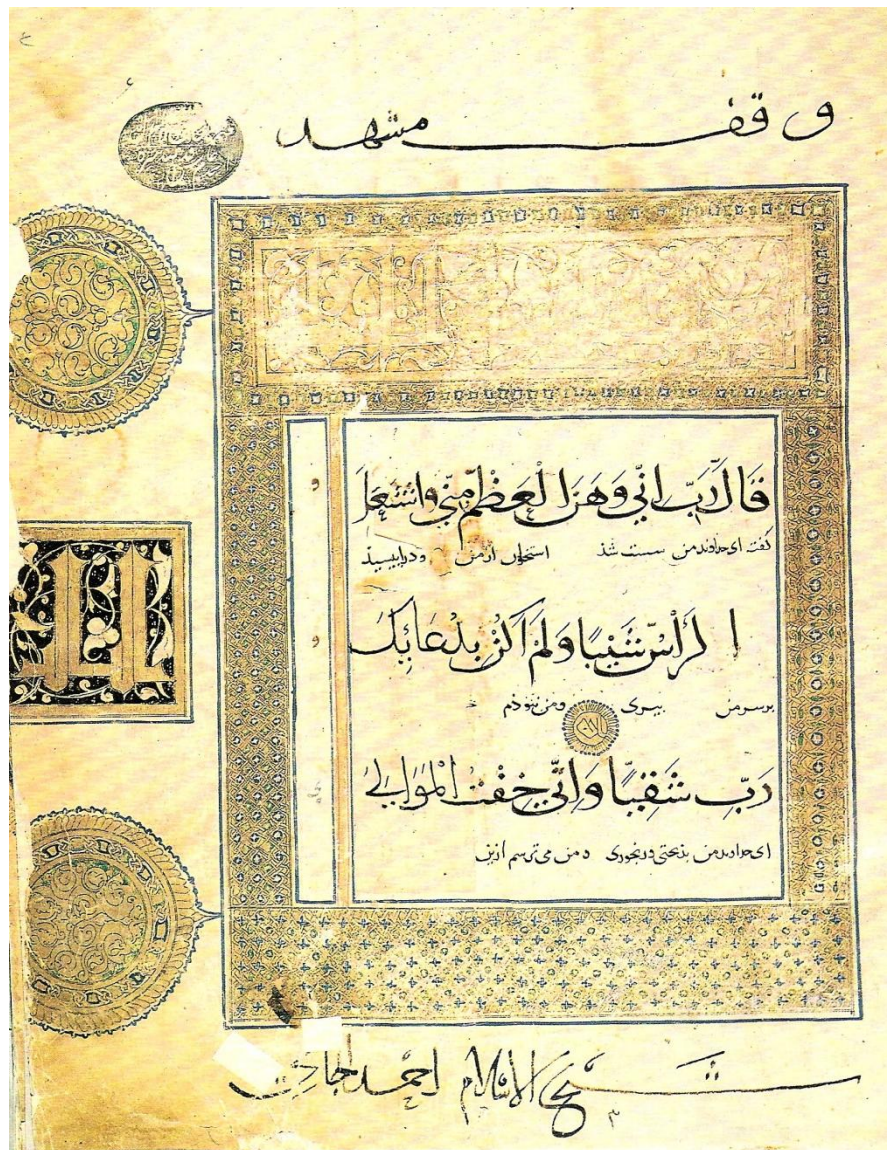 وقف مشهد
قال رب اني وهن العظم مني واشتعل
گفت ای خداوند من سست شذ استخوان از من ودرابیسید
الرأس شيبا ولم اكن بدعائك
برسر من پیری ومن نبوذم
رب شقيا واني خفت الموالي
ای خداوند من بذبختی ورنجوری ومن می ترسم ازین
شيخ الاسلام احمد الجامي